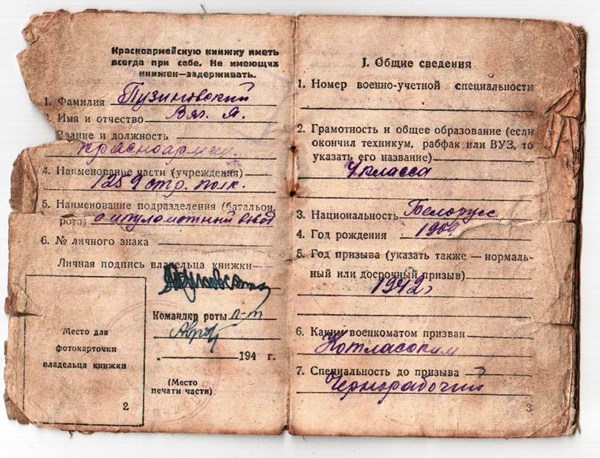 Красноармейскую книжку иметь
всегда при себе. Не имеющих
книжек—задерживать.
1. Фамилия Пузиновский
2. Имя и отчество
Звание и должность
Красноармеец
4. Наименование части (учреждения)
1259 стр. полк.
5. Наименование подразделения (батальон,
рота)
6. № личного знака
Личная подпись владельца книжки—
Командир роты л-т
194 г.
(Место
печати части)
Место для
фотокарточки
владельца книжки
2
I. Общие сведения
1. Номер военно-учетной специальности
2. Грамотность и общее образование (если
окончил техникум, рабфак или ВУЗ, то
указать его название)
4 класса
3. Национальность Белорусс
4. Год рождения 1909
5. Год призыва (указать также — нормаль-
ный или досрочный призыв)
1942 г
6. Каким военкоматом призван
Котласским
7. Специальность до призыва
Чернорабочий
3